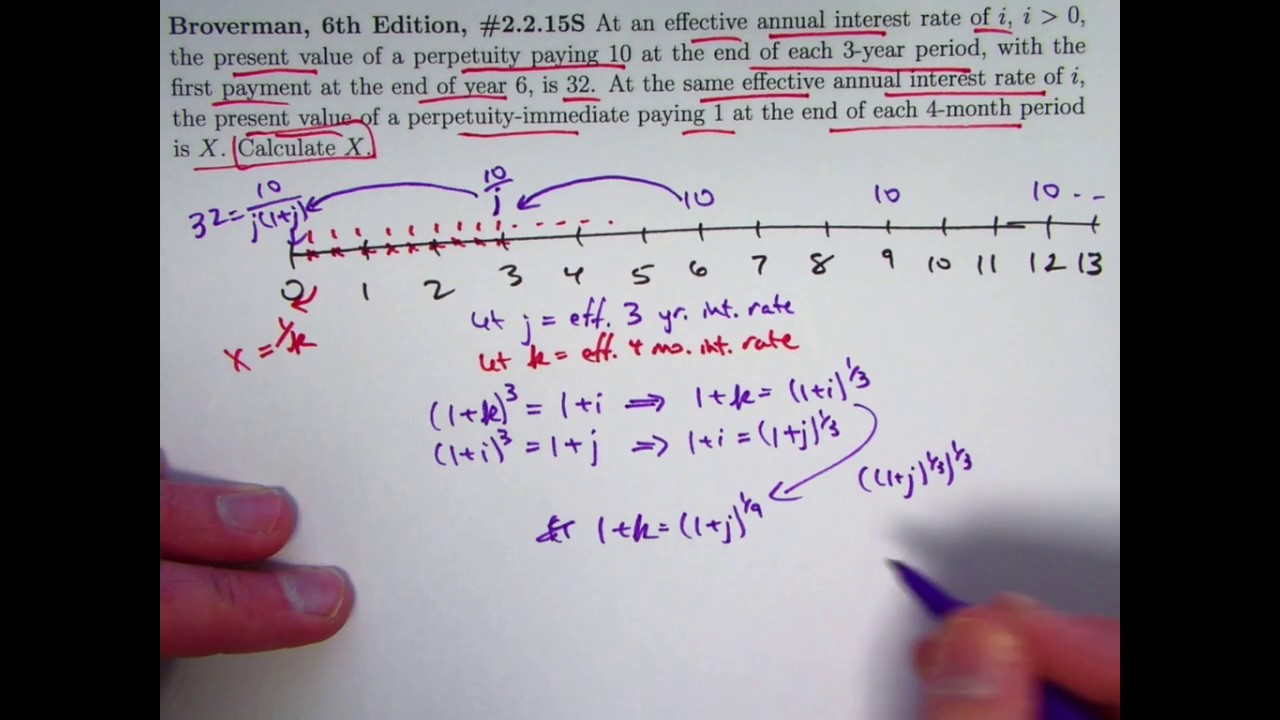 Broverman, 6th Edition, #2.2.15S At an effective annual interest rate of i, i > 0,
the present value of a perpetuity paying 10 at the end of each 3-year period, with the
first payment at the end of year 6, is 32. At the same effective annual interest rate of i,
the present value of a perpetuity-immediate paying 1 at the end of each 4-month period
is X. Calculate X.
32 = 10/j(1+j) 10/j 10 10 10 . . .
0 1 2 3 4 5 6 7 8 9 10 11 12 13
Let j = eff. 3 yr. int. rate
X = 1/k
Let k = eff. 4 mo. int. rate
(1+k)^3 = 1+i ⟹ 1+k = (1+i)^1/3
(1+i)^3 = 1+j ⟹ 1+i = (1+j)^1/3
((1+j)^1/3)^1/3
1+k = (1+j)^1/9